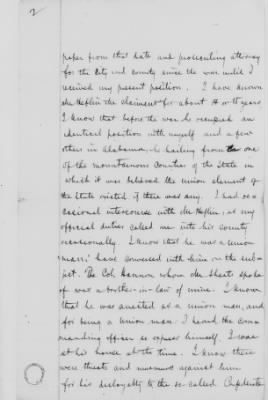 2
paper from that date and prosecuting attorney
for the City and county since the war until I
received my present position. I have known
Mr Heflin the claimant for about 14 or 15 years
I know that before the war he occupied an
identical position with myself and a few
others in Alabama, he hailing from the one
of the mountainous Counties of the State in
which it was believed the union element of
the State existed if there was any. I had oc-
casional intercourse with Mr Heflin, as my
official duties called me into his county
occasionally. I know that he was a union
man; have conversed with him on the sub-
ject. The Col. Hannon whom Mr Sheats spoke
of was a brother-in-law of mine. I know
that he was arrested as a union man, and
for being a union man. I heard the com-
manding officer so express himself. I was
at his house at the time. I know there
were threats and murmurs against him
for his disloyalty to the so-called Confederate